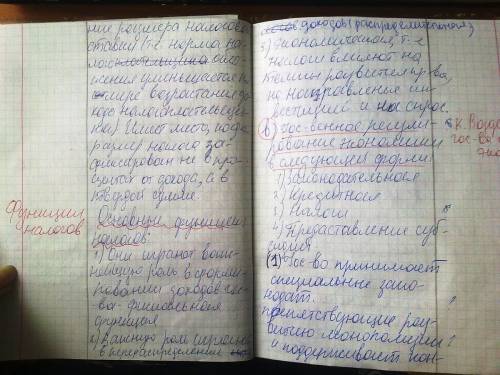 ние размера налогово
ставки (т.е. норма на-
лого обло-
жения уменьшается п
мере возрастания до
хода налогоплательщи
ка) Имеет место, когда
размер налога за-
фиксирован не в про-
центах от дохода, а в
твердой сумме.
Функции
налогов
Основные функции
налогов:
1) Они играют важ-
нейшую роль в форми-
ровании доходов гос-
ва фискальная
функция
2) Важную роль играют
в перераспределении
доходов (распределительная)
3) Экономическая, т.е
налоги влияют на
темпы развития пр-ва,
на направление ин-
вестиций и на спрос.
гос-венное регули-
рование экономики
в следующей форме
1) Законодательная
2) Кредитная
3) Налоги
4) Предоставление суб-
сидий
(1) Гос-во принимает
специальные зако-
нодат.
препятствующие раз-
витию монополии
и поддерживает кон-
к. Возде
гос-ва